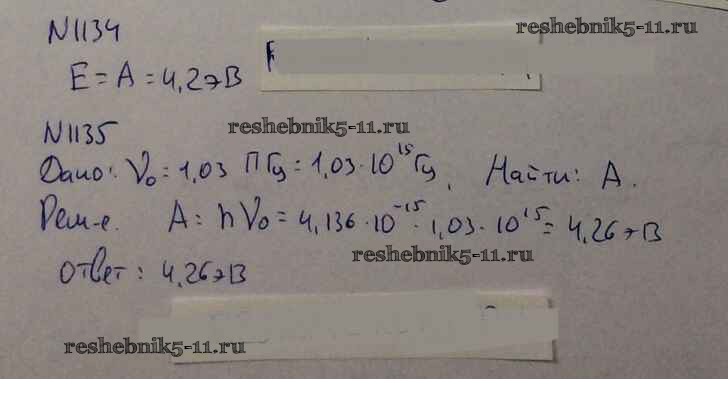 N1134
reshebnik5-11.ru
E = A = 4,2эВ
N1135
reshebnik5-11.ru
Дано: V₀ = 1,03 ПГц = 1,03·10¹⁵Гц, Найти: A.
Реш-е. A = hV₀ = 4,136·10⁻¹⁵·1,03·10¹⁵ = 4,26эВ
reshebnik5-11.ru
Ответ: 4,26эВ
reshebnik5-11.ru